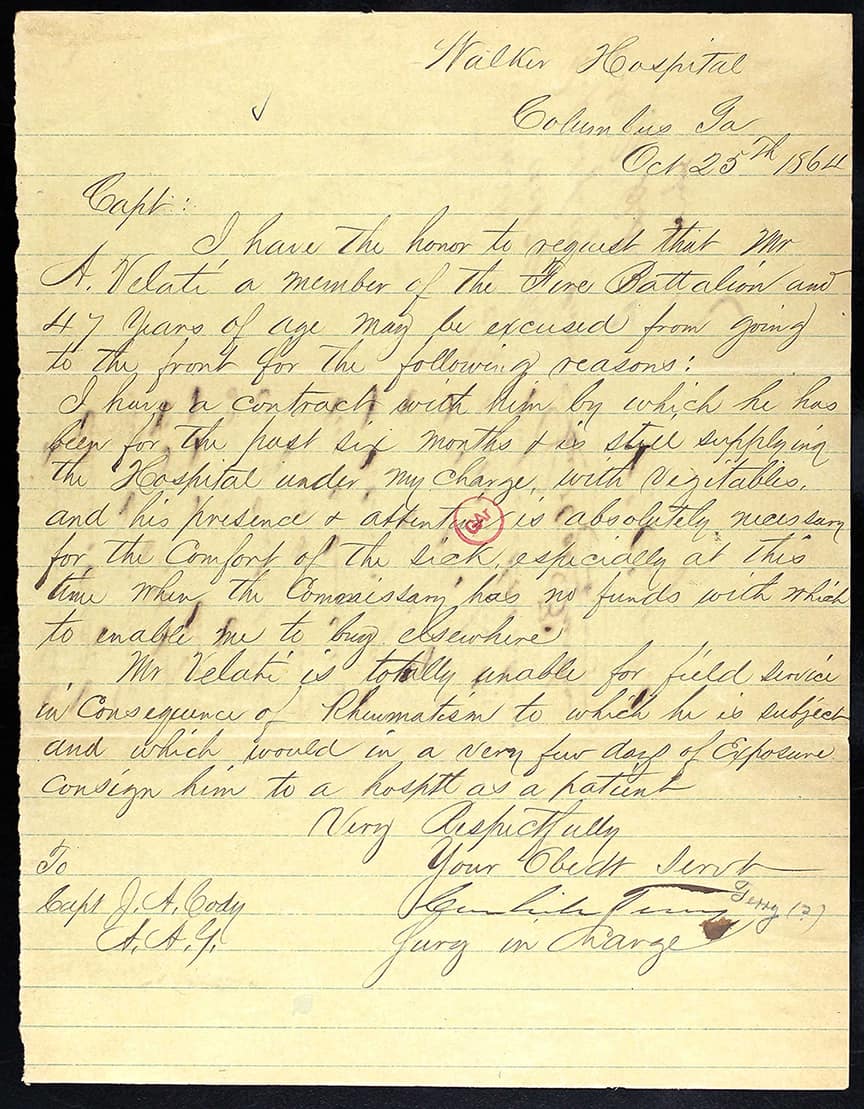 Walker Hospital
Columbus Ga
Oct 25th 1864
Capt:
I have the honor to request that Mr
A. Velati a member of the Fire Battalion and
47 years of age may be excused from going
to the front for the following reasons:
I have a contract with him by which he has
been for the past six months & is still supplying
the Hospital under my charge, with vegitables,
and his presence & attention is absolutely necessary
for the Comfort of the sick, especially at this
time when the Commissary has no funds with which
to enable me to buy elsewhere
Mr Velati is totally unable for field service
in Consequence of Rheumatism to which he is subject
and which would in a very few days of Exposure
consign him to a hosptl as a patient
Very Respectfully
Your Obedt Servt
Terry (?)
Surg in Charge
To
Capt J. A. Cody
A. A. G.
GAr